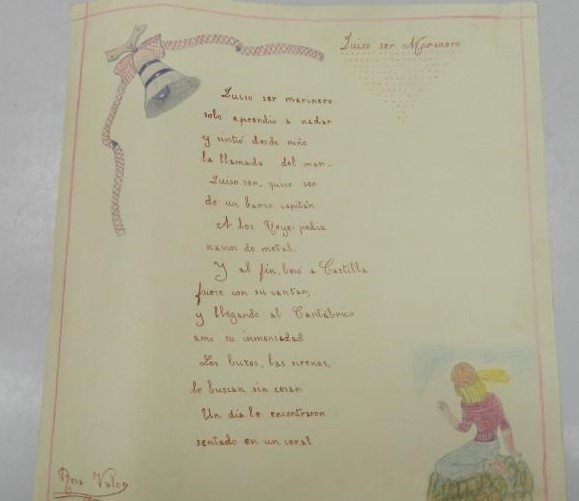 Quiso ser Marinero
Quiso ser marinero
solo aprendio a nadar
y sintió desde niño
la llamada del mar.
Quiso ser, quiso ser
de un barco capitán
A los Reyes pedia
navios de metal.
Y al fin, a Castilla
fuese con su cantar,
y llegando al Cantábrico
amó su inmensidad
Los buzos, las sirenas,
le buscan sin cesar
Un dia le encontraron
sentado en un coral
Rosa